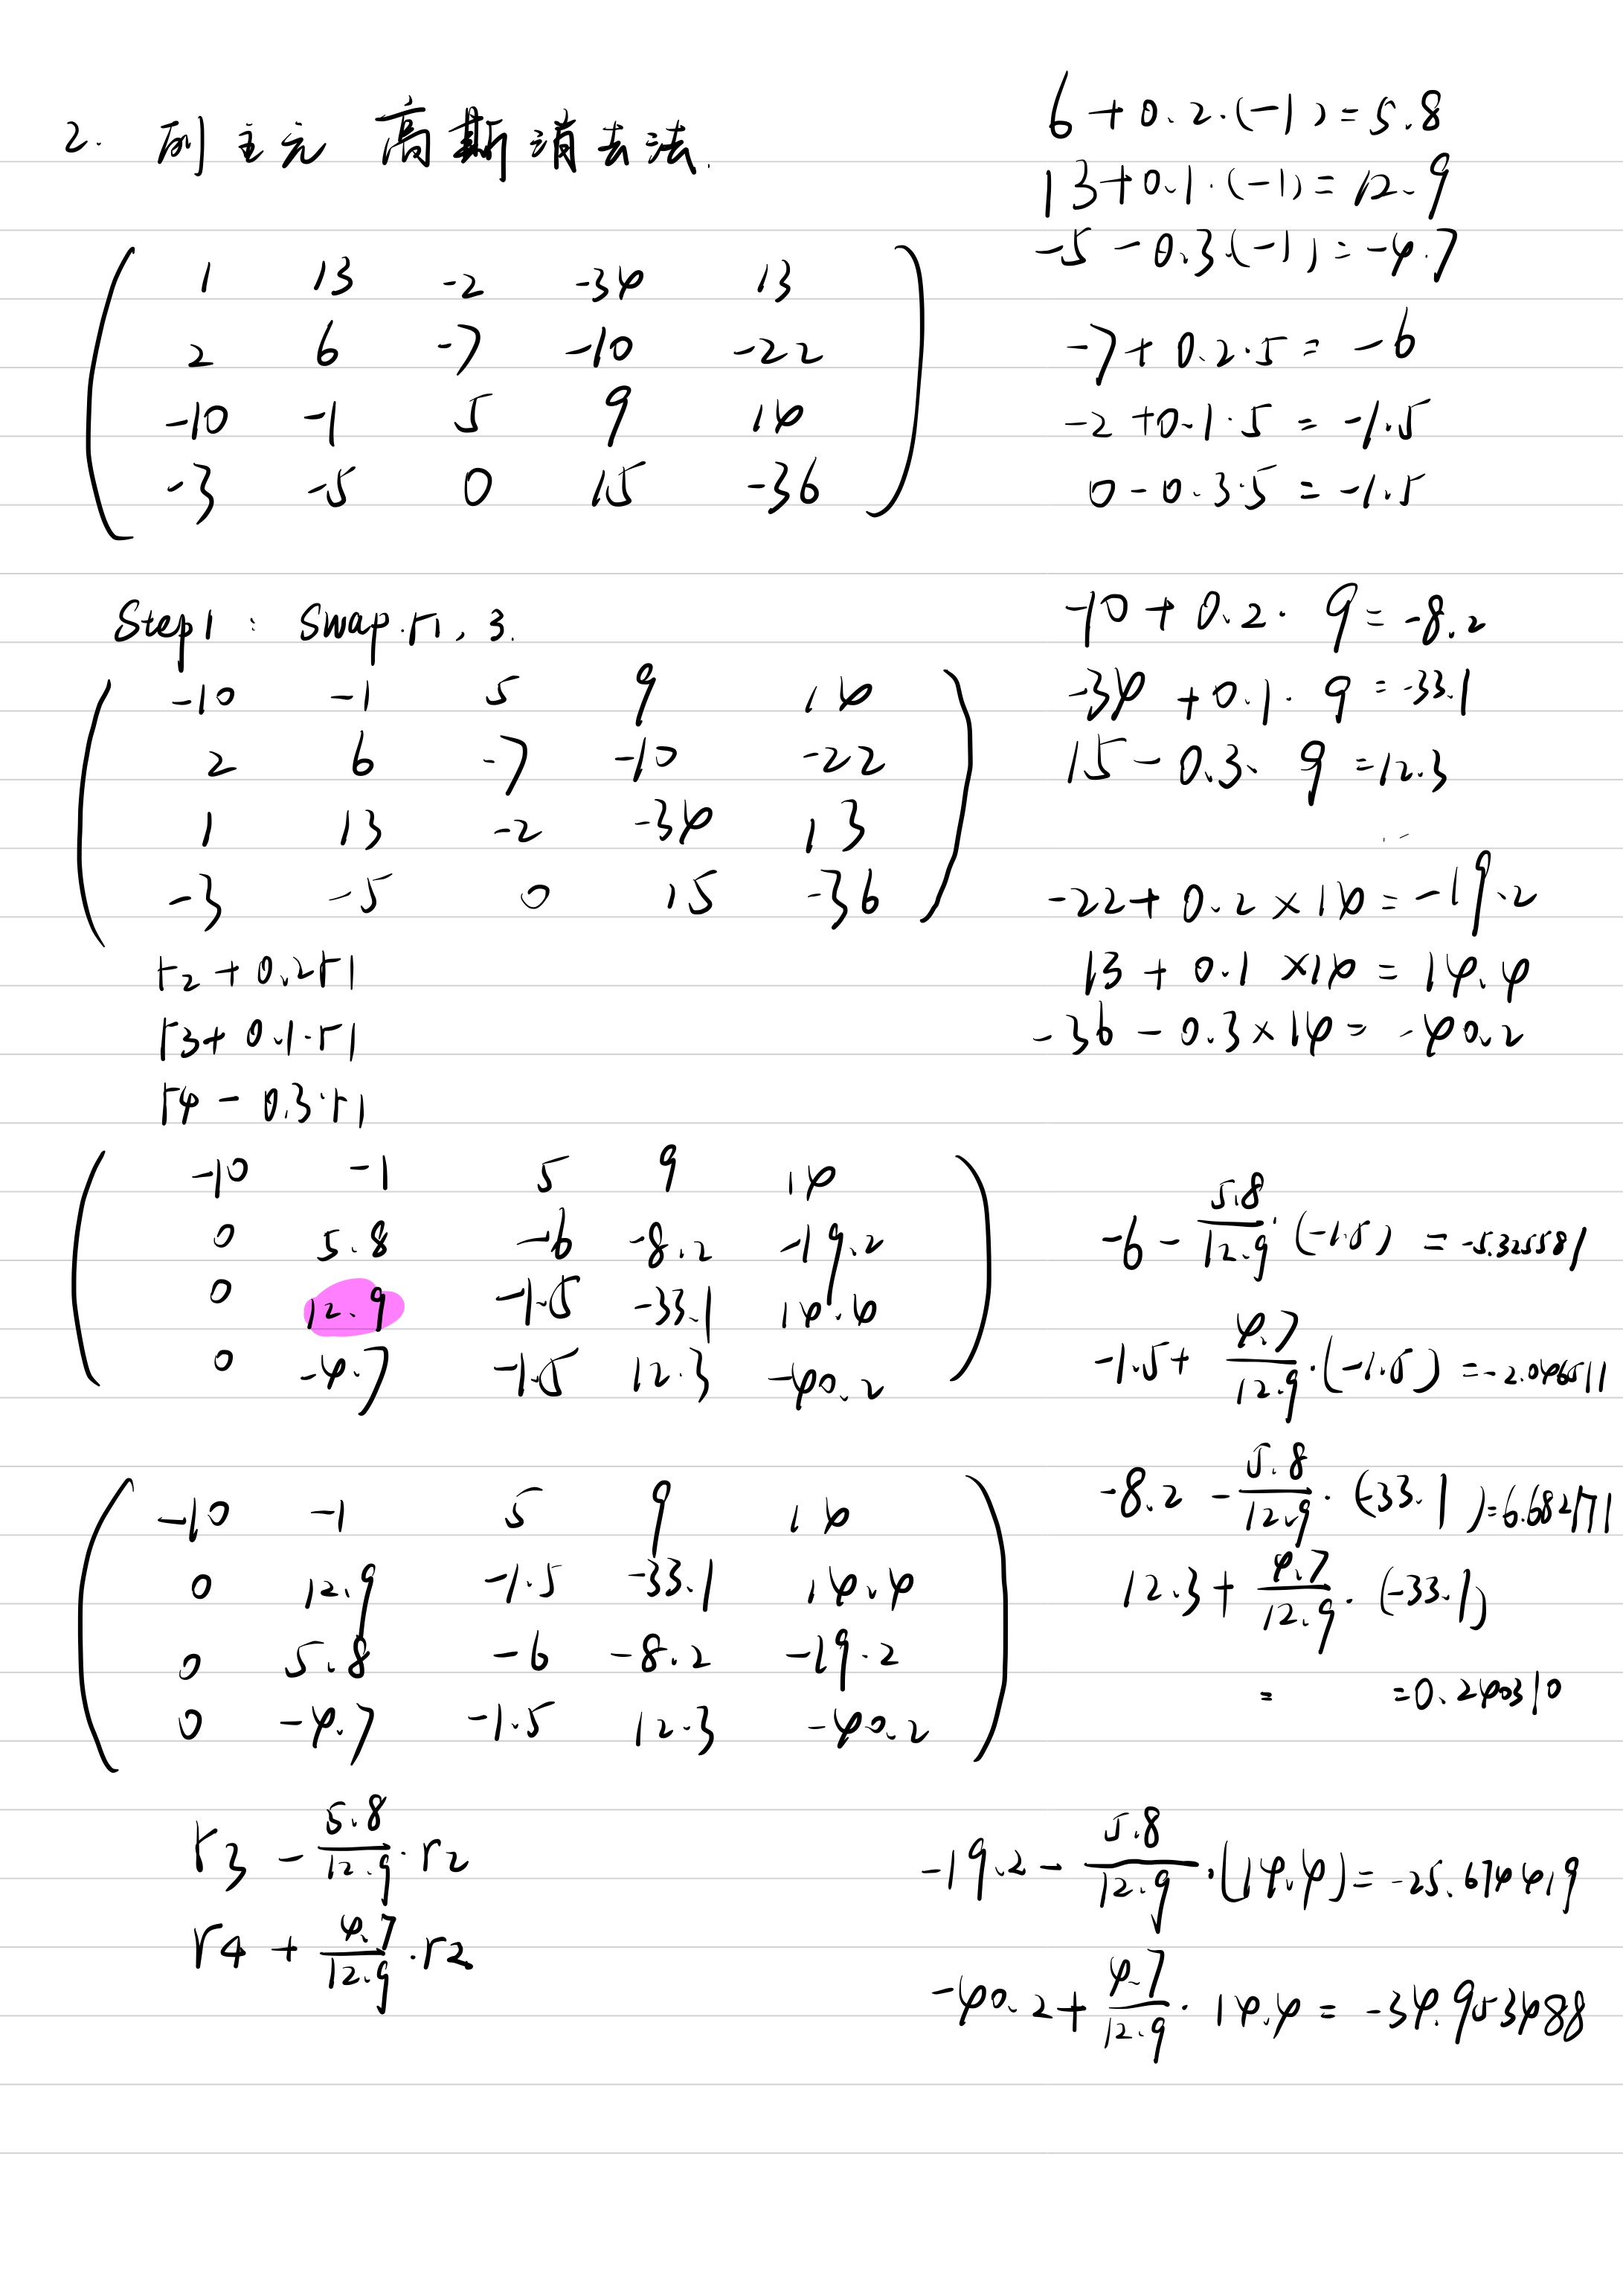 2. 列主元 高斯消去法.
1 13 -2 -34 13
2 6 -7 -10 -22
-10 -1 5 9 14
-3 -5 0 15 -36
Step1 : swap r1, 3.
-10 -1 5 9 14
2 6 -7 -10 -22
1 13 -2 -34 13
-3 -5 0 15 -36
r2 + 0.2r1
r3 + 0.1·r1
r4 - 0.3·r1
-10 -1 5 9 14
0 5.8 -6 -8.2 -19.2
0 12.9 -1.5 -33.1 14.4
0 -4.7 -1.5 12.3 -40.2
-10 -1 5 9 14
0 12.9 -1.5 -33.1 14.4
0 5.8 -6 -8.2 -19.2
0 -4.7 -1.5 12.3 -40.2
r3 - 5.8/12.9 · r2
r4 + 4.7/12.9 · r2
6 + 0.2·(-1) = 5.8
13 + 0.1·(-1) = 12.9
-5 - 0.3(-1) = -4.7
-7 + 0.2·5 = -6
-2 + 0.1·5 = -1.5
0 - 0.3·5 = -1.5
-10 + 0.2· 9 = -8.2
-34 + 0.1· 9 = -33.1
15 - 0.3· 9 = 12.3
-22 + 0.2 × 14 = -19.2
13 + 0.1 × 14 = 14.4
-36 - 0.3 × 14 = -40.2
-6 - 5.8/12.9 · (-1.5) = -5.325581
-1.5 + 4.7/12.9 · (-1.5) = -2.046511
-8.2 - 5.8/12.9 · (-33.1) =
12.3 + 4.7/12.9 · (-33.1)
= =0.240310
-19.2 - 5.8/12.9 · (14.4) = -25.674419
-40.2 + 4.7/12.9 · 14.4 = -34.953488